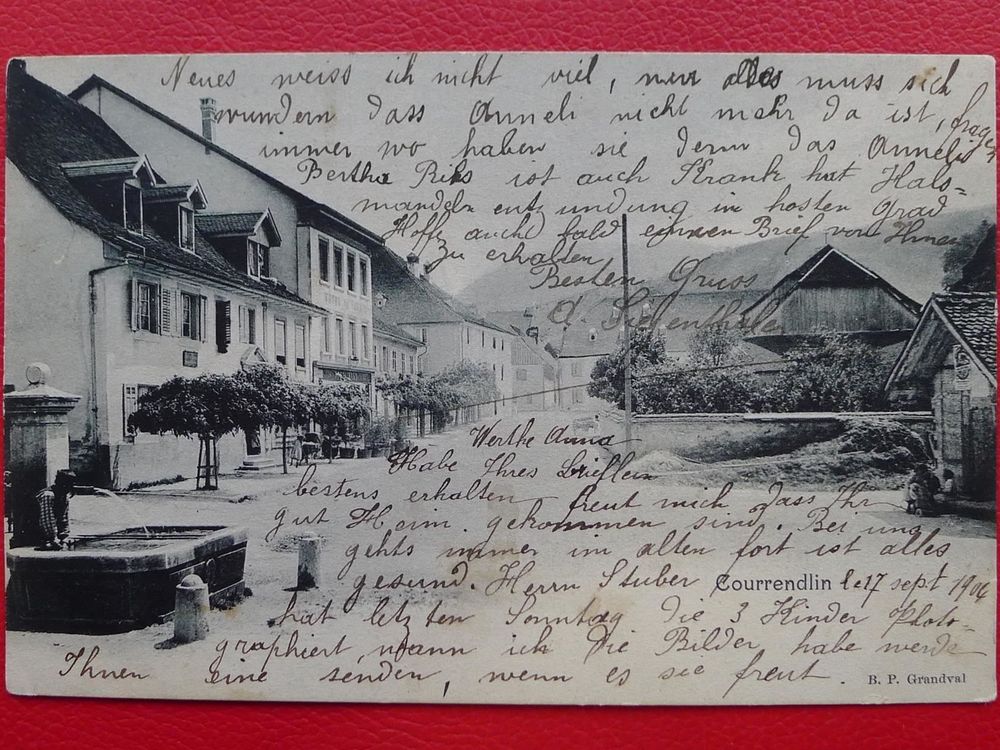 Neues weiss ich nicht viel, nur alles muss sich
wundern dass Anneli nicht mehr da ist, fragen
immer wo haben sie denn das Anneli
Bertha Ris ist auch Krank hat Hals=
mandelentzundung im hosten Grad
Hoffe auch bald einen Brief von Ihnen
zu erhalten.
Besten Gruss
Werthe Anna
Habe Ihres Brieflein
bestens erhalten freut mich dass Ihr
gut Heim gekommen sind. Bei uns
gehts immer im alten fort ist alles
gesund. Herrn Stuber
Courrendlin le 17 sept 1904
hat letzten Sonntag die 3 Kinder Photo-
graphiert, wann ich die Bilder habe werde
Ihnen eine senden, wenn es sie freut.
B. P. Grandval